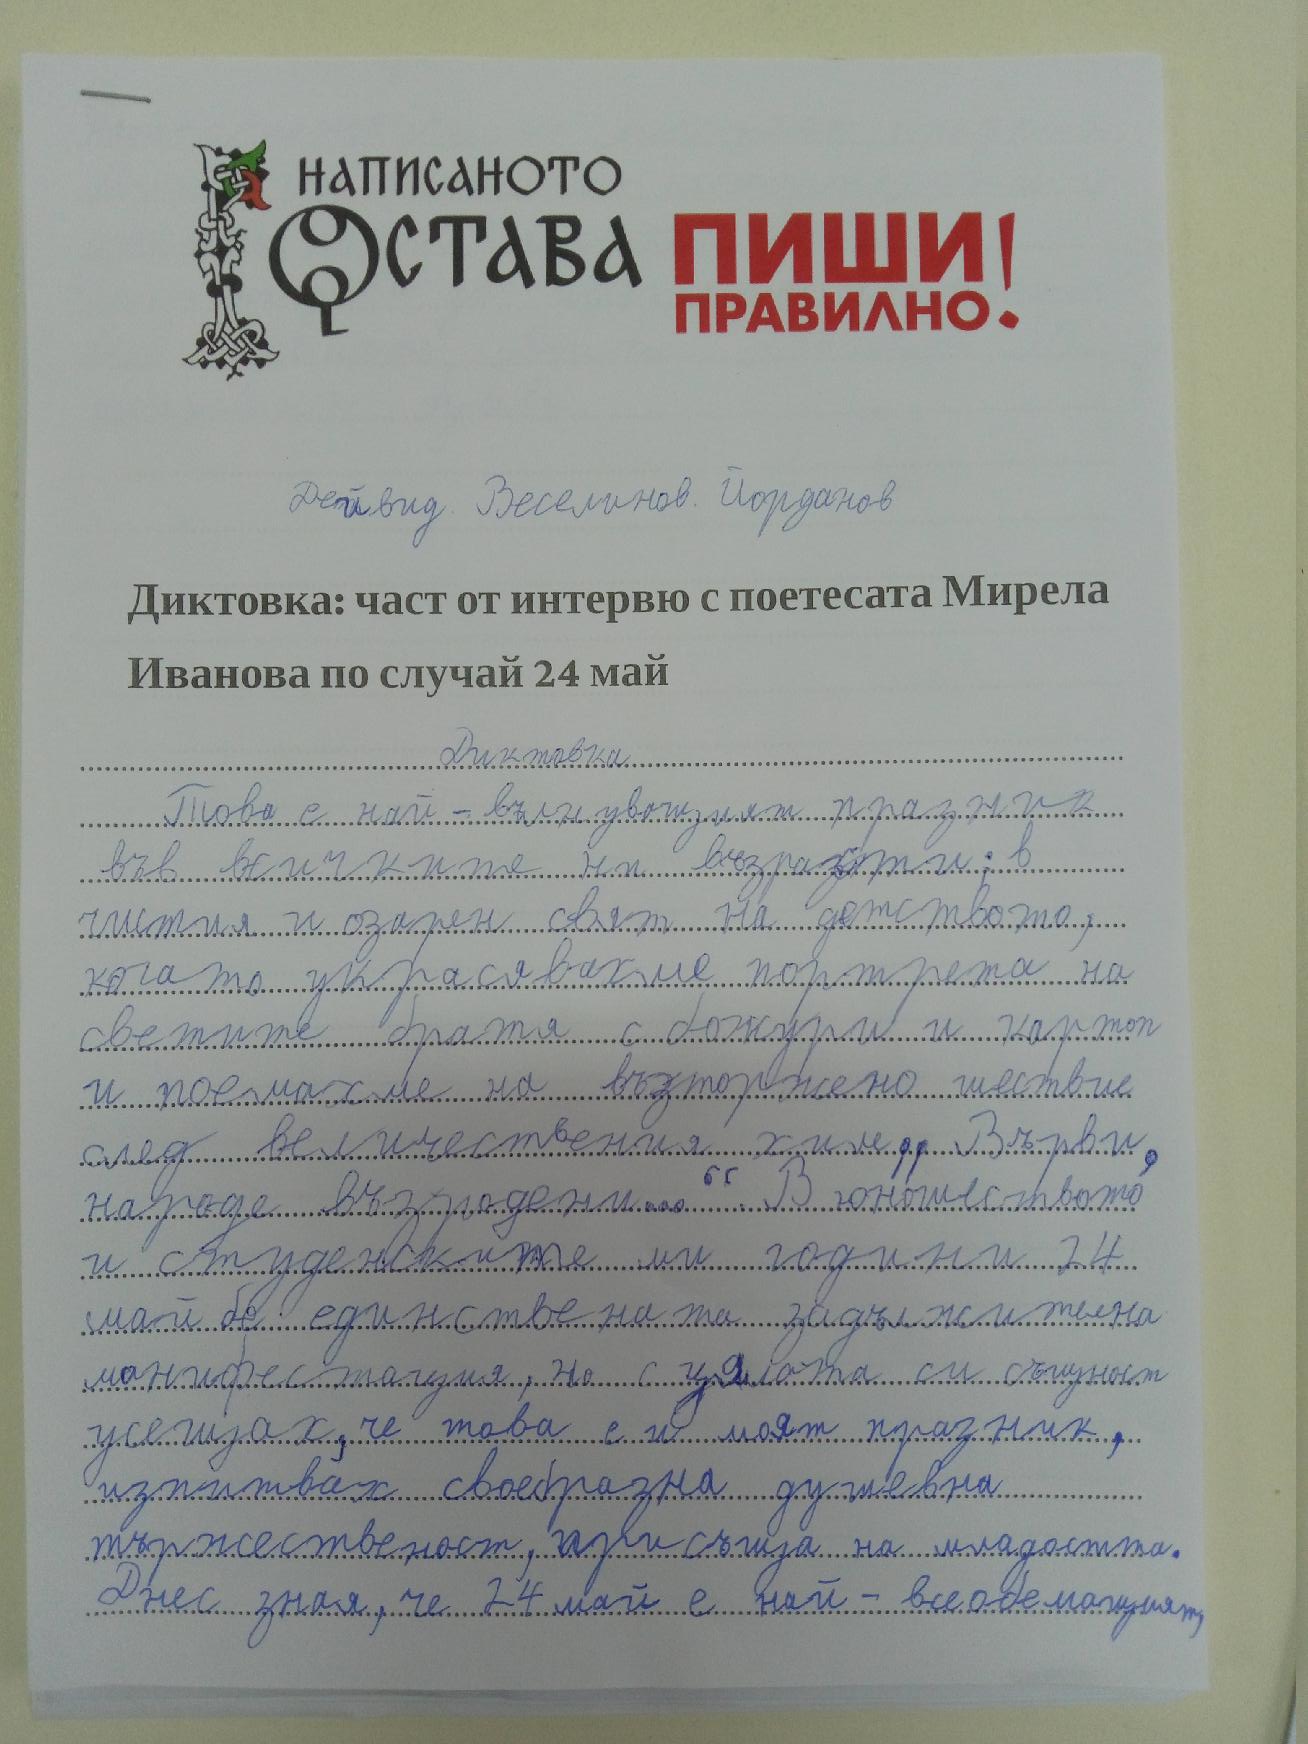 НАПИСАНОТО
ОСТАВА
ПИШИ!
ПРАВИЛНО
Дейвид Веселинов Йорданов
Диктовка: част от интервю с поетесата Мирела
Иванова по случай 24 май
Диктовка
Това е най-вълнуващият празник
във всичките ни възрасти: в
чистия и озарен свят на детството,
когато украсявахме портрета на
светите братя с божури и картон
и поемахме на възторжено шествие
след величествения химн „Върви,
народе възродени..." В юношеството
и студенските ми години 24
май бе единствената задължителна
манифестация, но с цялата си същност
усещах, че това е и моят празник,
изпитвах своебразна душевна
тържественост, присъща на младостта.
Днес зная, че 24 май е най-всеобемащият,